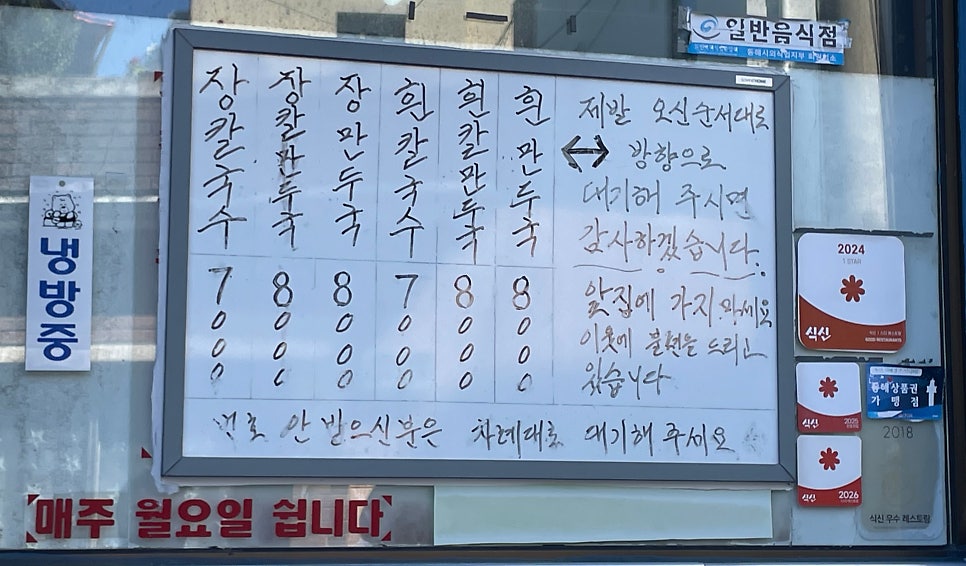 일반음식점
동해시외식업지부
장칼국수
장칼만두국
장만두국
흰칼국수
흰칼만두국
흰만두국
7000
8000
8000
7000
8000
8000
제발 오신순서대로
↔ 방향으로
대기해 주시면
감사하겠습니다.
앞집에 가지 마세요
이웃에 불편을 드리고
있습니다
번호 안 받으신분은 차례대로 대기해 주세요
냉방중
매주 월요일 쉽니다
2024
1 STAR
식신
식신
2025
식신
2026
동해상품권
가맹점
2018
식신 우수 레스토랑